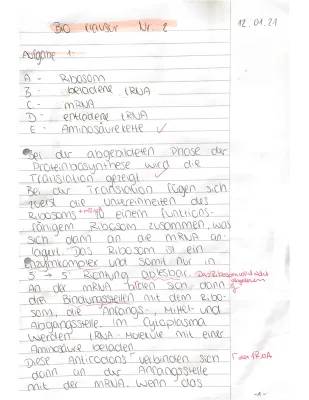 BIO Klausur Nr. 2
12.01.21
Aufgabe 1:
A - Ribosom
B - beladene tRNA
C - mRNA
D - entladene tRNA
E - Aminosäurekette ✓
Bei der abgebildeten Phase der
Proteinbiosynthese wird die
Translation gezeigt.
Bei der Translation fügen sich
zuerst die Untereinheiten des
Ribosoms zu einem funktions-
fähigem Ribosom zusammen, was
sich dann an die mRNA an-
lagert. Das Ribosom ist ein
Enzymkomplex und somit nur in
5' → 3' Richtung ablesbar.
An der mRNA bilden sich dann
drei Bindungsstellen mit dem Ribo-
som, die Anfangs-, Mittel- und
Abgangsstelle. Im Cytoplasma
werden tRNA-Moleküle mit einer
Aminosäure beladen.
Diese Anticodons verbinden sich
dann an der Anfangsstelle
mit der mRNA. Wenn das
der tRNA
-1-